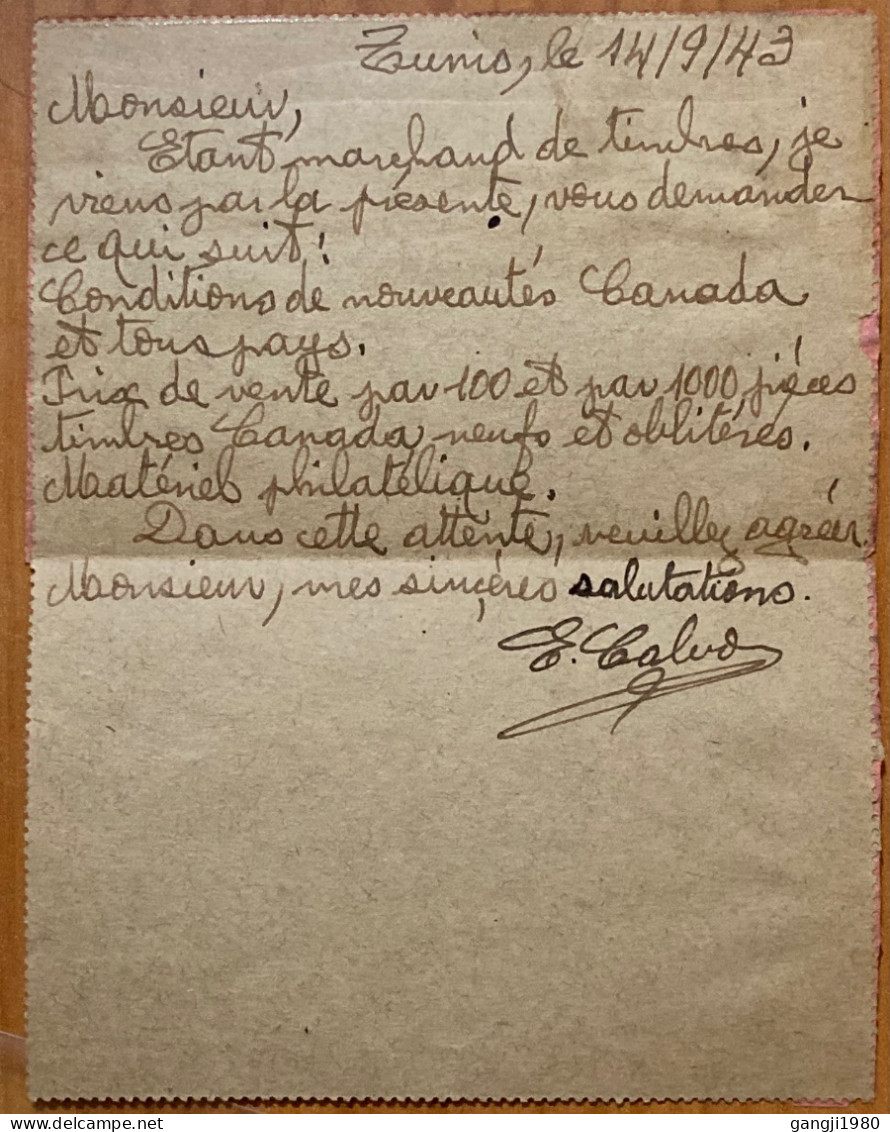 Tunis, le 14/9/43
Monsieur,
Etant marchand de timbres, je
viens par la présente, vous demander
ce qui suit:
Conditions de nouveautés Canada
et tous pays.
Prix de vente par 100 et par 1000 pièces
timbres Canada, neufs et oblitérés.
Matériel philatélique.
Dans cette attente, veuillez agréer
Monsieur, mes sincères salutations.
E. Calvo
gangji1980